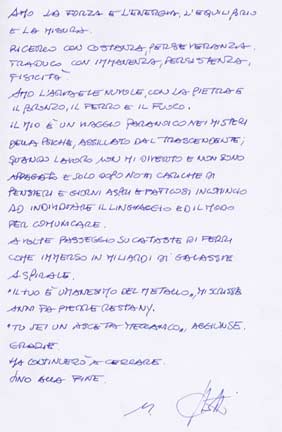 AMO LA FORZA E L'ENERGIA, L'EQUILIBRIO
E LA MISURA.
RICERCO CON COSTANZA, PERSEVERANZA.
TRADUCO CON IMMANENZA, PERSISTENZA,
FISICITÀ
AMO L'ARIA E LE NUVOLE, CON LA PIETRA E
IL BRONZO, IL FERRO E IL FUOCO.
IL MIO È UN VIAGGIO PARANOICO NEI MISTERI
DELLA PSICHE, ASSILLATO DAL TRASCENDENTE;
QUANDO LAVORO NON MI DIVERTO E NON SONO
APPAGATO E SOLO DOPO NOTTI CARICHE DI
PENSIERI E GIORNI ASPRI E FATICOSI INCOMINCIO
AD INDIVIDUARE IL LINGUAGGIO ED IL MODO
PER COMUNICARE.
A VOLTE PASSEGGIO SU CATASTE DI FERRI
COME IMMERSO IN MILIARDI DI GALASSIE
A SPIRALE.
"IL TUO È UMANESIMO DEL METALLO", MI SCRISSE
ANNI FA PIERRE RESTANY.
"TU SEI UN ASCETA MECCANICO", AGGIUNSE.
GRAZIE.
MA CONTINUERÒ A CERCARE.
SINO ALLA FINE.